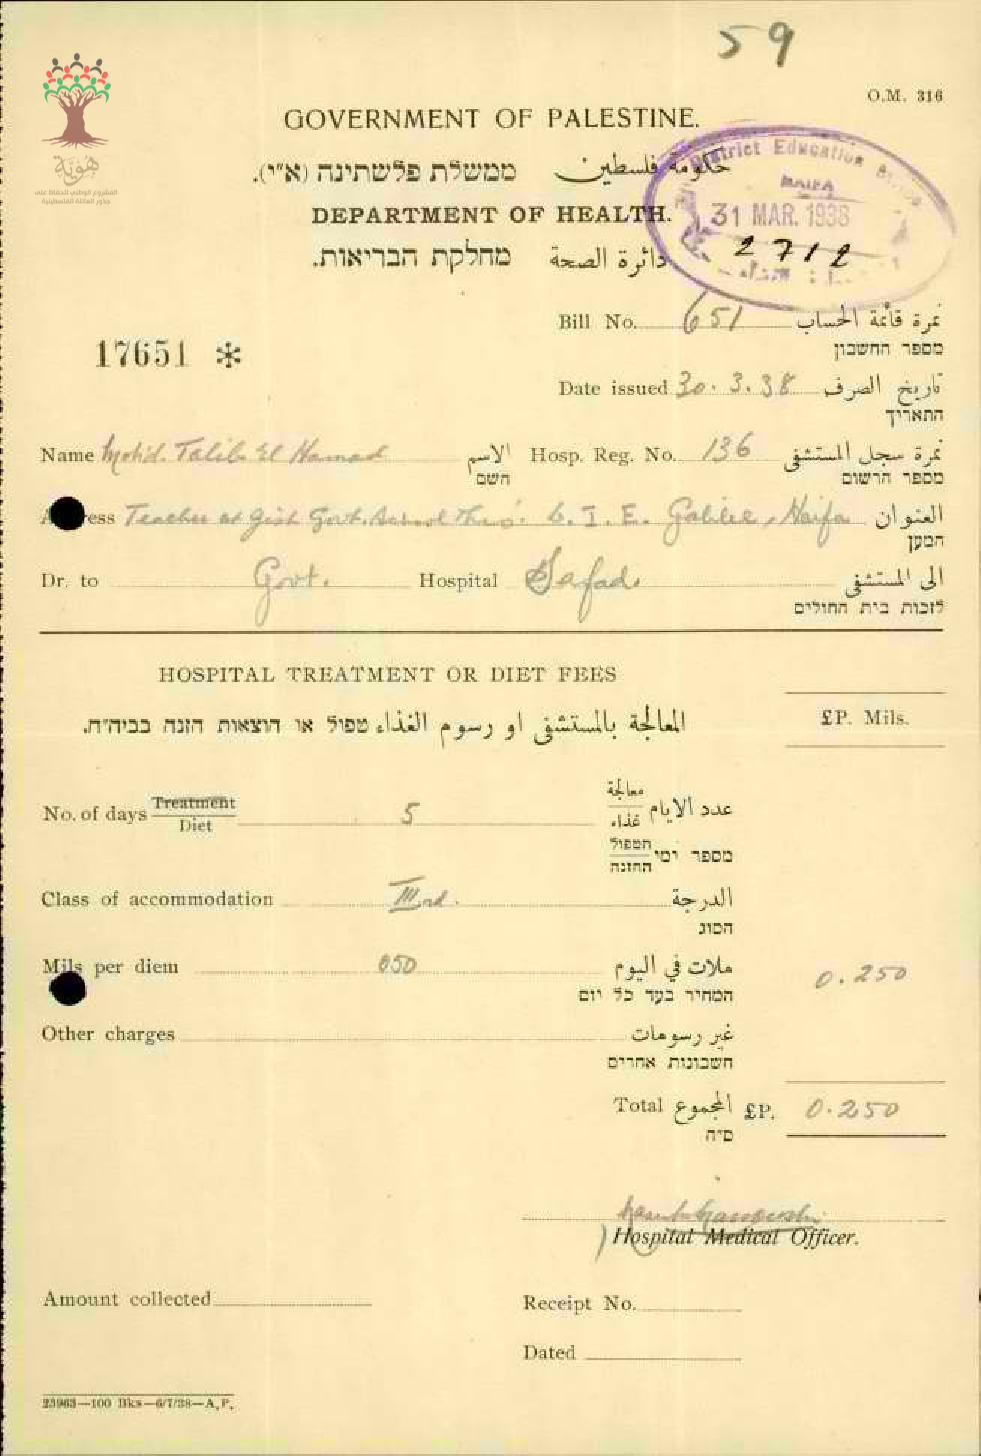 59
O.M. 316
هوية
المشروع الوطني للحفاظ على
جذور العائلة الفلسطينية
GOVERNMENT OF PALESTINE.
حكومة فلسطين ממשלת פלשתינה (א"י).
DEPARTMENT OF HEALTH.
دائرة الصحة מחלקת הבריאות.
District Education
HAIFA
31 MAR. 1938
2712
Bill No. 651 نمرة قائمة الحساب
מספר החשבון
17651 *
Date issued 30.3.38 تاريخ الصرف
התאריך
Name Mohd. Talib El Hamad الاسم Hosp. Reg. No. 136 نمرة سجل المستشفى
השם מספר הרשום
ess Teacher at Gish Govt. School Thro'. C. I. E. Galilee, Haifa العنوان
המען
Dr. to Govt. Hospital Safad. الى المستشفى
לזכות בית החולים
HOSPITAL TREATMENT OR DIET FEES
المعالجة بالمستشفى او رسوم الغذاء טפול או הוצאות הזנה בביה"ח.
£P. Mils.
No. of days Treatment Diet 5 عدد الايام معالجة غذاء
מספר ימי הטפול ההזנה
Class of accommodation IIIrd. الدرجة
הסוג
Mils per diem 050 ملات في اليوم 0.250
המחיר בעד כל יום
Other charges غير رسومات
חשבונות אחרים
Total المجموع £P. 0.250
ס"ה
Hospital Medical Officer.
Amount collected Receipt No.
Dated
23963—100 Bks—6/7/38—A.P.